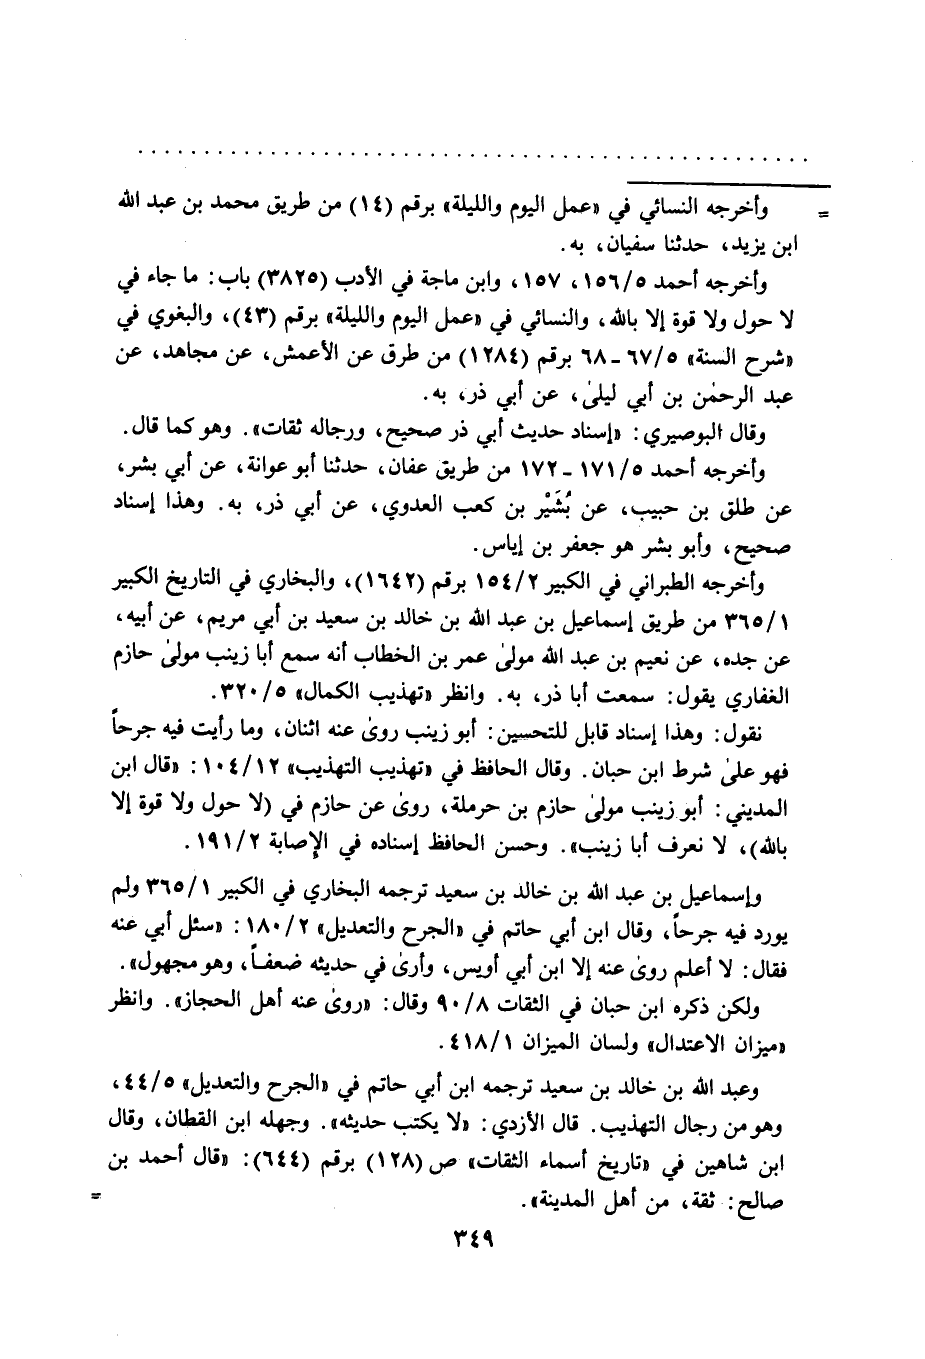 . . . . . . . . . . . . . . . . . . . . . . . . . . . . . . . . . . . . . . . . . . . . . . . . . .
= وأخرجه النسائي في «عمل اليوم والليلة» برقم (١٤) من طريق محمد بن عبد الله
ابن يزيد، حدثنا سفيان، به.
وأخرجه أحمد ١٥٦/٥، ١٥٧، وابن ماجة في الأدب (٣٨٢٥) باب: ما جاء في
لا حول ولا قوة إلا بالله، والنسائي في «عمل اليوم والليلة» برقم (٤٣)، والبغوي في
«شرح السنة» ٦٧/٥ - ٦٨ برقم (١٢٨٤) من طرق عن الأعمش، عن مجاهد، عن
عبد الرحمٰن بن أبي ليلىٰ، عن أبي ذر، به.
وقال البوصيري: «إسناد حديث أبي ذر صحيح، ورجاله ثقات». وهو كما قال.
وأخرجه أحمد ١٧١/٥ - ١٧٢ من طريق عفان، حدثنا أبو عوانة، عن أبي بشر،
عن طلق بن حبيب، عن بُشَيْر بن كعب العدوي، عن أبي ذر، به. وهذا إسناد
صحيح، وأبو بشر هو جعفر بن إياس.
وأخرجه الطبراني في الكبير ١٥٤/٢ برقم (١٦٤٢)، والبخاري في التاريخ الكبير
٣٦٥/١ من طريق إسماعيل بن عبد الله بن خالد بن سعيد بن أبي مريم، عن أبيه،
عن جده، عن نعيم بن عبد الله مولىٰ عمر بن الخطاب أنه سمع أبا زينب مولىٰ حازم
الغفاري يقول: سمعت أبا ذر، به. وانظر «تهذيب الكمال» ٣٢٠/٥.
نقول: وهذا إسناد قابل للتحسين: أبو زينب روىٰ عنه اثنان، وما رأيت فيه جرحاً
فهو علىٰ شرط ابن حبان. وقال الحافظ في «تهذيب التهذيب» ١٠٤/١٢: «قال ابن
المديني: أبو زينب مولىٰ حازم بن حرملة، روىٰ عن حازم في (لا حول ولا قوة إلا
بالله)، لا نعرف أبا زينب». وحسن الحافظ إسناده في الإصابة ١٩١/٢.
وإسماعيل بن عبد الله بن خالد بن سعيد ترجمه البخاري في الكبير ٣٦٥/١ ولم
يورد فيه جرحاً، وقال ابن أبي حاتم في «الجرح والتعديل» ١٨٠/٢: «سئل أبي عنه
فقال: لا أعلم روىٰ عنه إلا ابن أبي أويس، وأرىٰ في حديثه ضعفاً، وهو مجهول».
ولكن ذكره ابن حبان في الثقات ٩٠/٨ وقال: «روىٰ عنه أهل الحجاز». وانظر
«ميزان الاعتدال» ولسان الميزان ٤١٨/١.
وعبد الله بن خالد بن سعيد ترجمه ابن أبي حاتم في «الجرح والتعديل» ٤٤/٥،
وهو من رجال التهذيب. قال الأزدي: «لا يكتب حديثه». وجهله ابن القطان، وقال
ابن شاهين في «تاريخ أسماء الثقات» ص (١٢٨) برقم (٦٤٤): «قال أحمد بن
صالح: ثقة، من أهل المدينة». =
٣٤٩